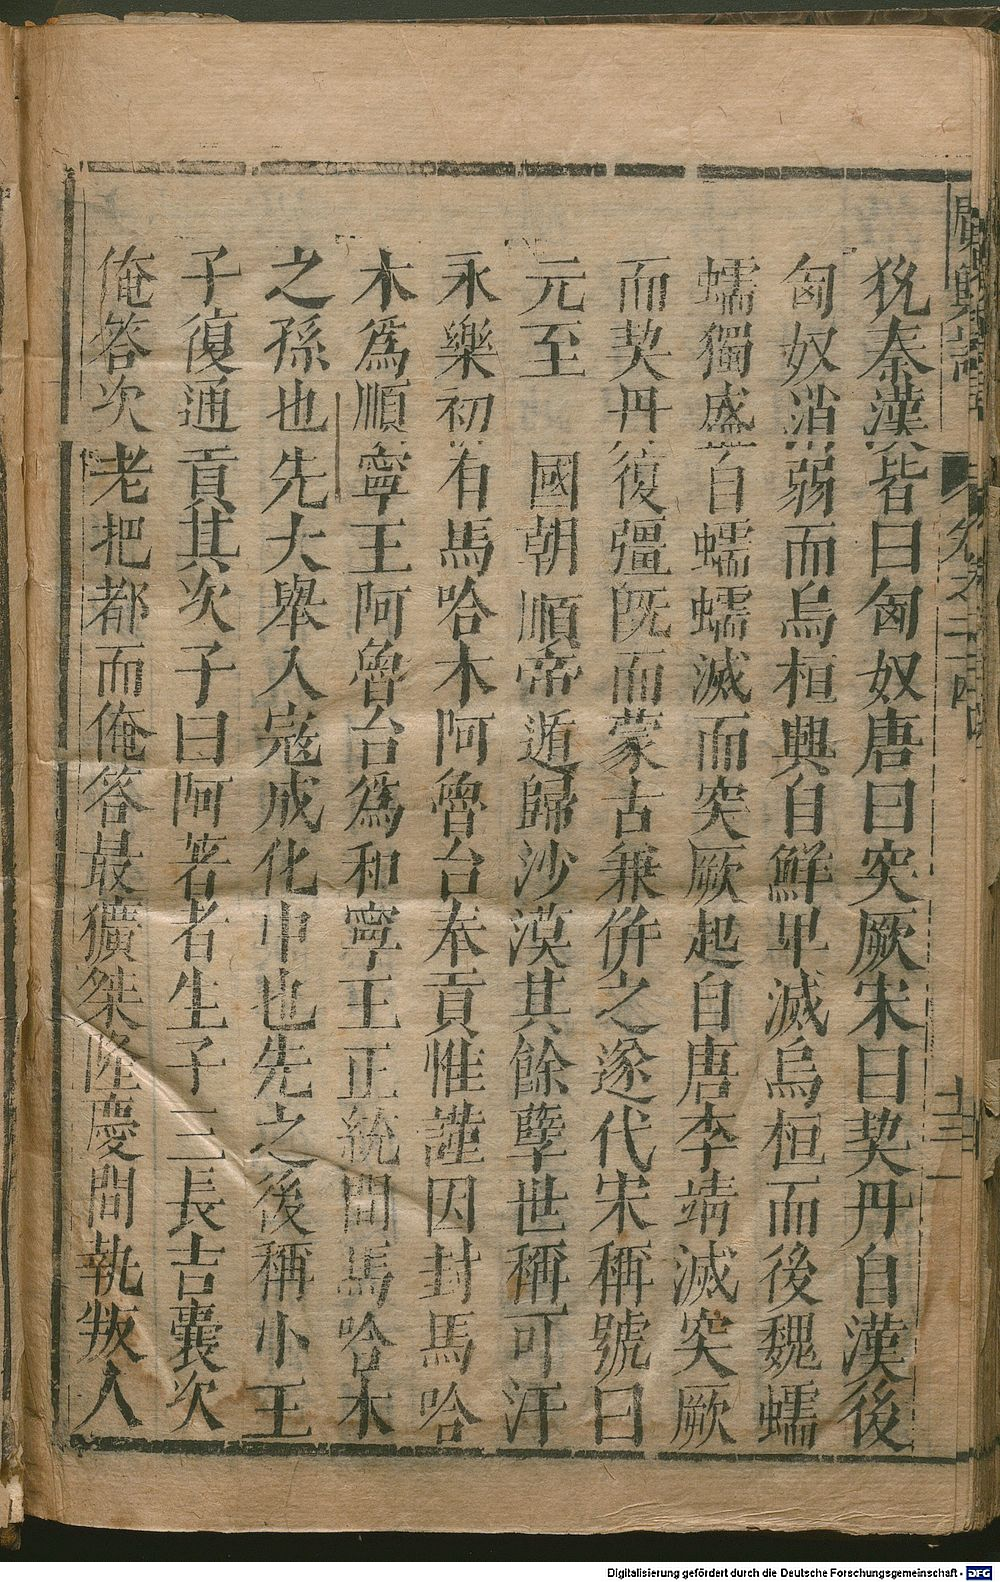 廣輿記
卷之二十四
十三
狁秦漢皆曰匈奴唐曰突厥宋曰契丹自漢後
匈奴消弱而烏桓興自鮮卑滅烏桓而後魏蠕
蠕獨盛自蠕蠕滅而突厥起自唐李靖滅突厥
而契丹復彊旣而蒙古兼併之遂代宋稱號曰
元至 國朝順帝遁歸沙漠其餘孽世稱可汗
永樂初有馬哈木阿魯台奉貢惟謹因封馬哈
木爲順寧王阿魯台爲和寧王正統間馬哈木
之孫也先大舉入寇成化中也先之後稱小王
子復通貢其次子曰阿著者生子三長吉囊次
俺答次老把都而俺答最獷桀隆慶間執叛人
Digitalisierung gefördert durch die Deutsche Forschungsgemeinschaft - DFG